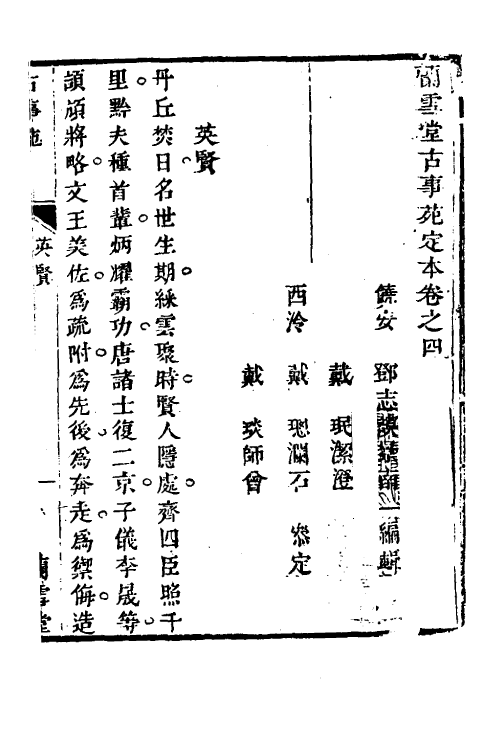 蘭雪堂古事苑定本卷之四
饒安 鄧志謨 編輯
戴 珉潔澄
西泠 戴 璁瀾石 叅定
戴 琰師曾
英賢
丹丘焚日名世生期綵雲聚時賢人隱處齊四臣照千
里黔夫種首輩炳耀霸功唐諸士復二京子儀李晟等
頡頏將略文王美佐爲疏附爲先後爲奔走爲禦侮造
古事苑
英賢
一
蘭雪堂